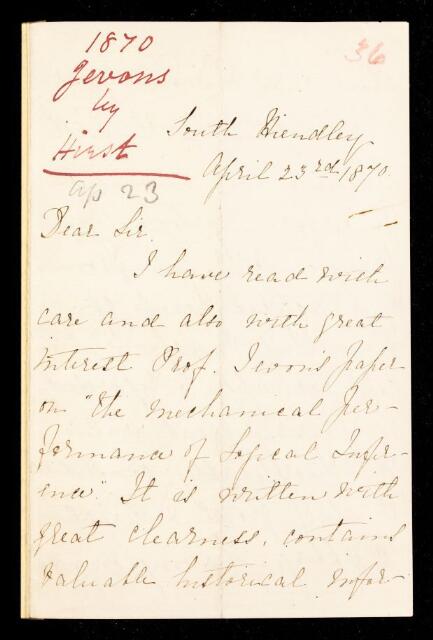 1870
Jevons
by
Hirst
36
ap 23
South Hiendley
April 23rd 1870.
Dear Sir.
I have read with
care and also with great
interest Prof. Jevons' paper
on "the mechanical per-
formance of Logical Infer-
ence". It is written with
great clearness, contains
valuable historical infor-